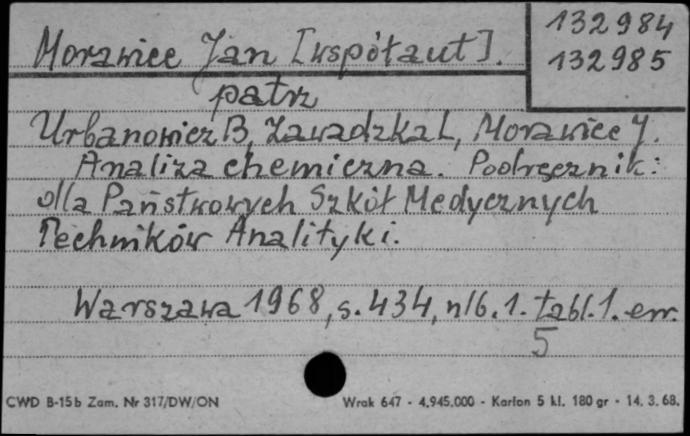 Morawiec Jan [współaut].
132984
132985
patrz
Urbanowicz B, Zawadzka L, Morawiec J.
Analiza chemiczna. Podręcznik:
dla Państwowych Szkół Medycznych
Techników Analityki.
Warszawa 1968, s. 434, nlb. 1. tabl. 1. err.
5
CWD B-15b Zam. Nr 317/DW/ON
Wrak 647 - 4.945.000 - Karton 5 kl. 180 gr - 14. 3. 68.